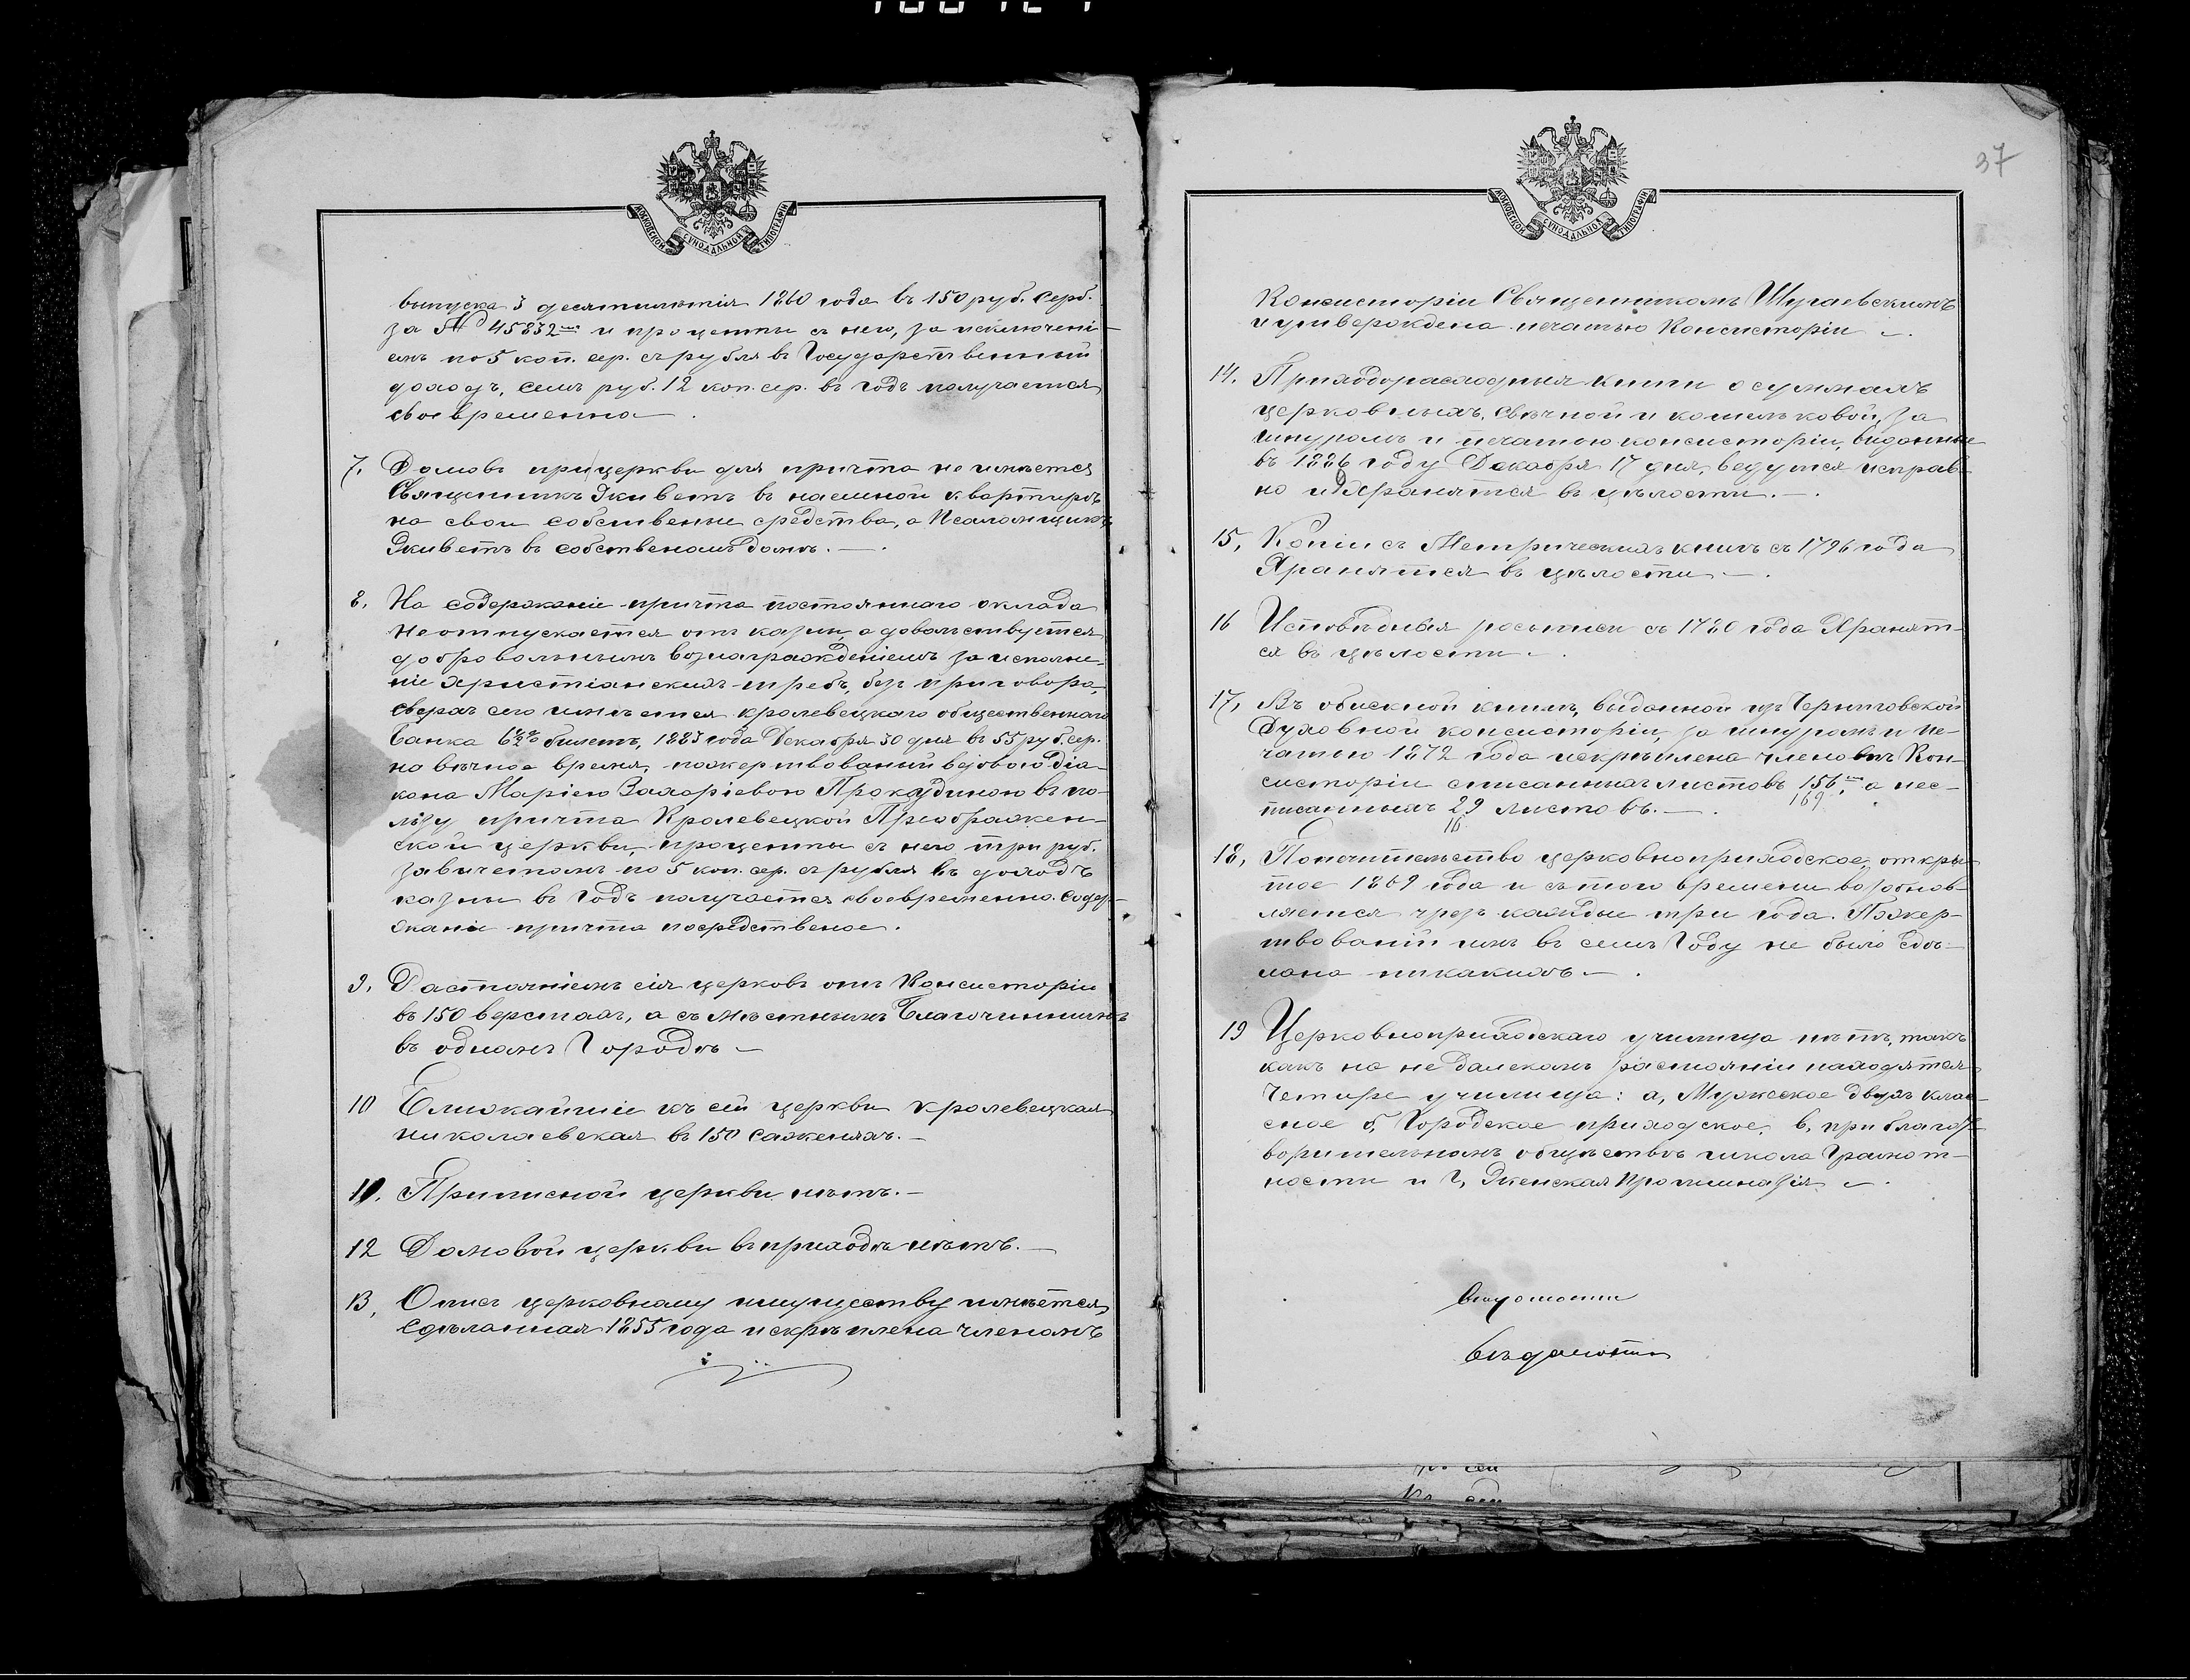 МОСКОВСКОЙ СѴНОДАЛЬНОЙ ТИПОГРАФІИ
выпуска 3 десятилѣтія 1860 года въ 150 руб. серб.
за № 45832мъ и проценты съ него, за исключені-
емъ по 5 коп. сер. съ рубля въ Государственный
доходъ, семь руб. 12 коп. сер. въ годъ получается
своевременно.
7. Домовъ при церкви для причта не имѣется
Священникъ Живетъ въ наемной квартирѣ
на свои собственные средства, а Псаломщикъ
Живетъ въ собственомъ домѣ. —.
8. На содержаніе причта постояннаго оклада
не отпускается отъ казны, а довольствуется
добровольнымъ вознагражденіемъ за исполне-
ніе христіанскихъ требъ, безъ приговора,
сверхъ сего имѣется кролевецкаго общественнаго
банка 6½% билетъ, 1883 года Декабря 30 дня въ 55 руб. сер.
на вѣчное время, пожертвованный вдовою Діа-
кона Маріею Захаріевою Прокудиною въ по-
льзу причта Кролевецкой Преображен-
ской церкви, проценты съ него три руб.
за вычетомъ по 5 коп. сер. съ рубля въ доходъ
казны въ Годъ получается своевременно. Содер-
жаніе причта посредственое.
9. Растояніемъ сія церковь отъ Консисторіи
въ 150 верстахъ, а съ мѣстнымъ Благочиннымъ
въ одномъ Городѣ —
10 Ближайшіе къ сей церкви кролевецкая
николаевская въ 150 саженяхъ. —
11. Приписной церкви нѣтъ. —
12 Домовой церкви въ приходѣ нѣтъ. —
13, Опись церковному имуществу имѣется,
сдѣланная 1855 года и скрѣплена членомъ
37
МОСКОВСКОЙ СѴНОДАЛЬНОЙ ТИПОГРАФІИ
Консисторіи Священникомъ Шугаевскимъ
и утверождена печатью Консисторіи —.
14. Приходорасходныя книги о суммахъ
церковныхъ, свѣчной и кошельковой, за
шнуромъ и печатью консисторіи, выданные
въ 1886 году Декабря 17 дня, ведутся исправ-
но и хранятся въ цѣлости. —.
15, Копіи съ Метрическихъ книгъ съ 1796 года
Хранятся въ цѣлости —.
16 Исповѣдныя росписи съ 1780 года Хранят-
ся въ цѣлости —.
17, Въ обискной книгѣ, выданной изъ Черниговской
Духовной консисторіи, за шнуромъ и пе-
чатью 1872 года искрѣплена членовъ Кон-
систоріи списанныхъ листовъ 156, а неc-
169
писанныхъ 29 листовъ. —.
16
18, Попечительство церковноприходское, откры-
тое 1869 года и съ того времени возобнов-
ляется чрезъ каждые три года. Пожер-
твованій имъ въ семъ Году не было сдѣ-
лано никакихъ —.
19 Церковноприходскаго училища нѣтъ, такъ
какъ на не далекомъ растояніи находятся
Четыре училища: а, Мужеское двухъ клас-
сное б, Городское приходское, в, при благот-
ворительномъ обществѣ школа Грамот-
ности и Г, Женская Прогимназія —.
вѣдомости